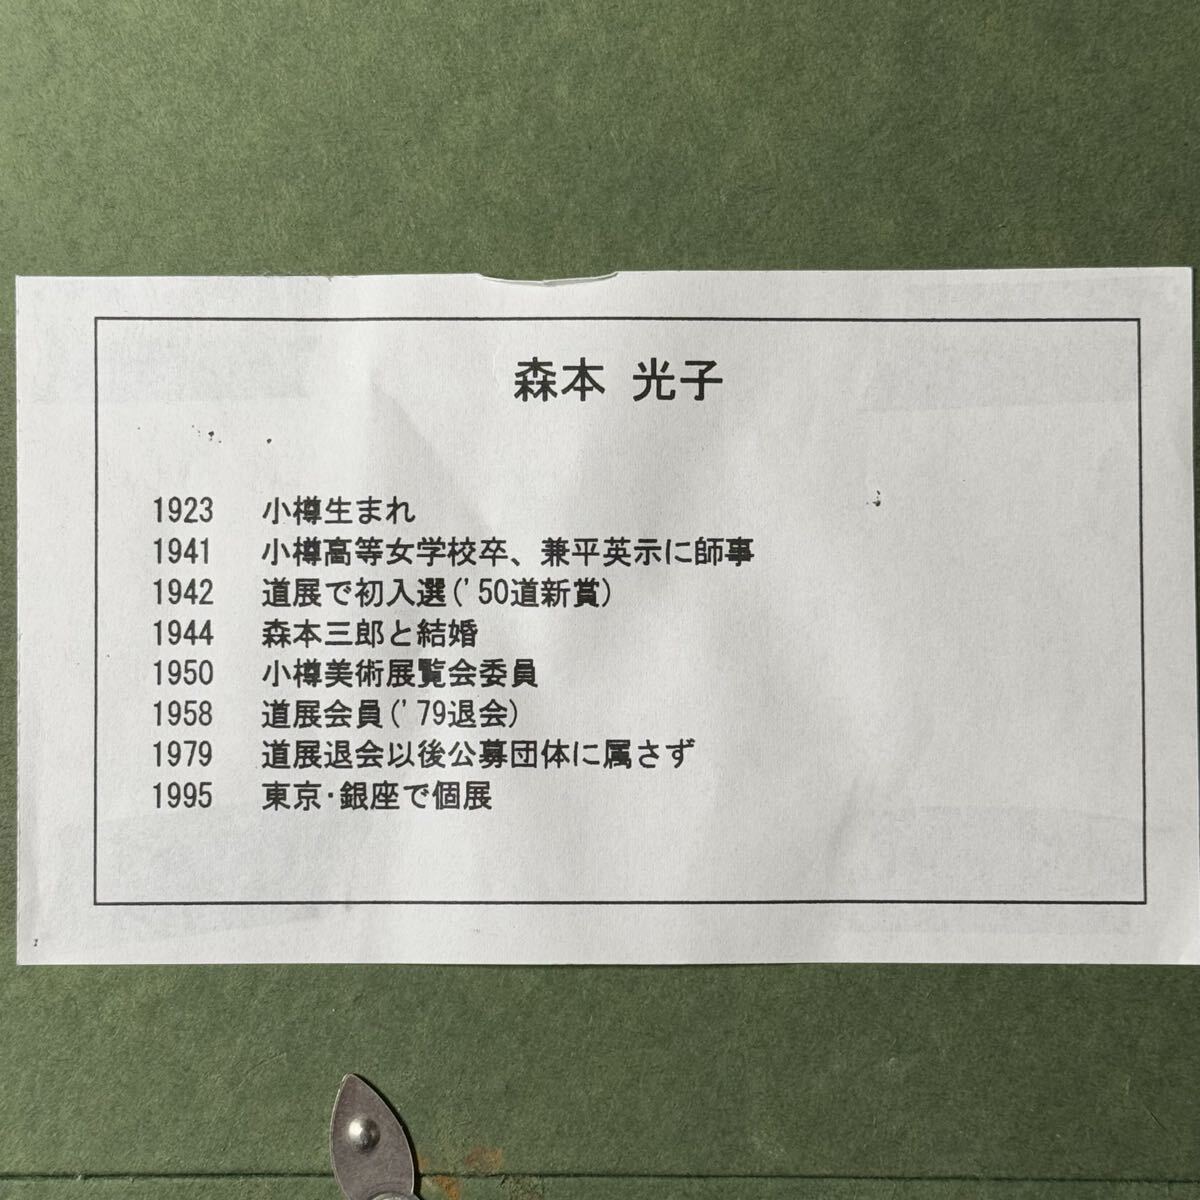 森本 光子
1923 小樽生まれ
1941 小樽高等女学校卒、兼平英示に師事
1942 道展で初入選('50道新賞)
1944 森本三郎と結婚
1950 小樽美術展覧会委員
1958 道展会員('79退会)
1979 道展退会以後公募団体に属さず
1995 東京･銀座で個展